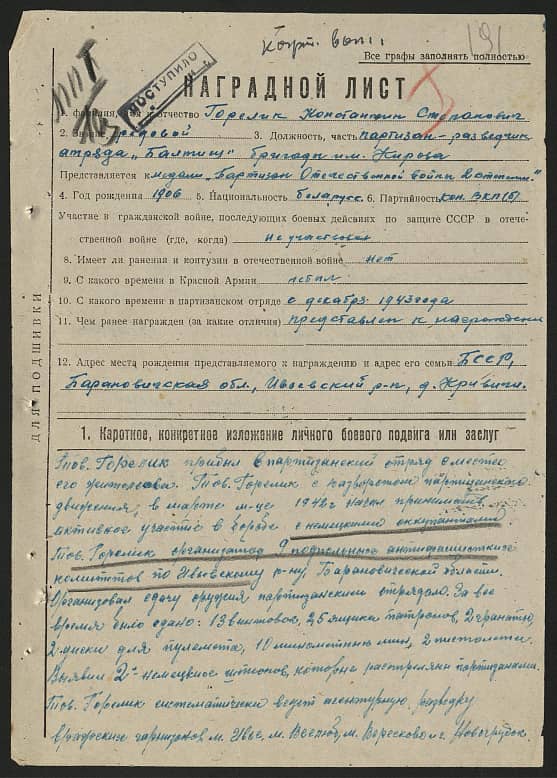 Все графы заполнять полностью
ППТ
ПОСТУПИЛО
НАГРАДНОЙ ЛИСТ
1. Фамилия, имя и отчество Горелик Константин Степанович
2. Звание рядовой 3. Должность, часть партизан-разведчик
отряда „Балтиец" бригады им. Кирова
Представляется к медали „Партизан Отечественной войны 2 степени"
4. Год рождения 1906 5. Национальность беларусс 6. Партийность кан. ВКП(б)
Участие в гражданской войне, последующих боевых действиях по защите СССР в отече-
ственной войне (где, когда) не участвовал
8. Имеет ли ранения и контузии в отечественной войне нет
9. С какого времени в Красной Армии не был
10. С какого времени в партизанском отряде с декабря 1943 года
11. Чем ранее награжден (за какие отличия) представлен к награждению
12. Адрес места рождения представляемого к награждению и адрес его семьи БССР,
Барановичская обл., Ивьевский р-н, д. Кривичи.
ДЛЯ ПОДШИВКИ
1. Кароткое, конкретное изложение личного боевого подвига или заслуг
Тов. Горелик прибыл в партизанский отряд с места
его жительства. Тов. Горелик с развёртом партизанского
движения, в марте м-це 1942 г начал принимать
активное участие в борьбе с немецкими оккупантами.
Тов. Горелик организатор 9 подпольных антифашистских
комитетов по Ивьевскому р-ну, Барановической области.
Организовал сдачу оружия партизанским отрядам. За все
время было сдано: 13 винтовок, 25 ящика патронов, 2 гранаты
2 диски для пулемета, 10 минометных мин, 2 пистолета.
Выявил 2- немецких шпионов, которые растреляны партизанами.
Тов. Горелик систематически ведет агентурную разведку
вражеских гарнизонов м. Ивье, м. м. г. Новогрудок.